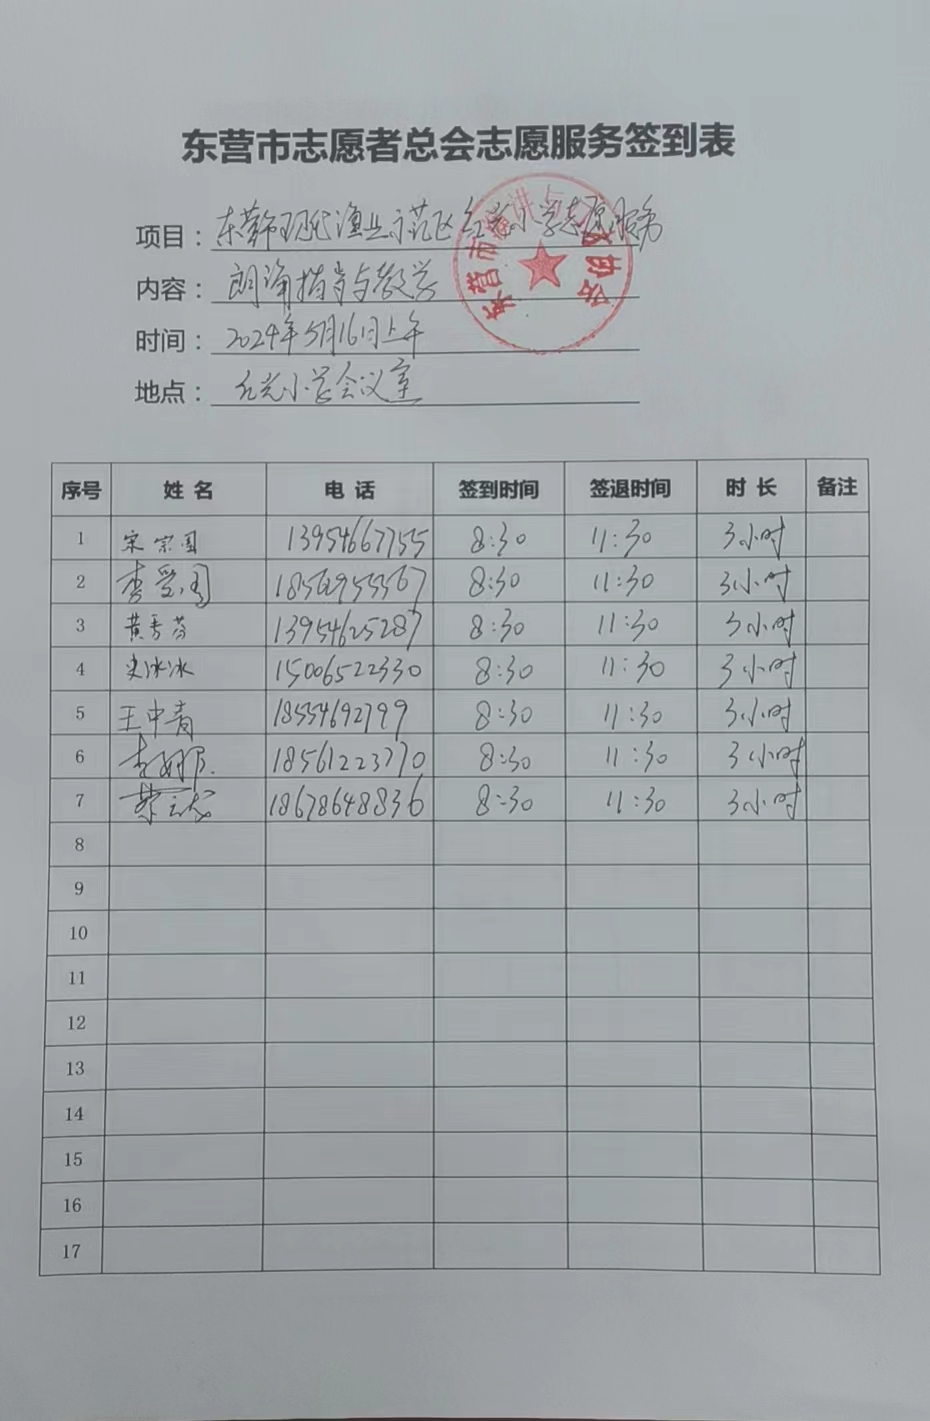 东营市志愿者总会志愿服务签到表
项目：东营市现代渔业示范区红光小学志愿服务
内容：朗诵指导与教学
时间：2024年5月16日上午
地点：红光小学会议室
东营市 演讲与 协会
序号 姓名 电话 签到时间 签退时间 时长 备注
1 宋宗国 13954667755 8:30 11:30 3小时
2 李爱国 8:30 11:30 3小时
3 黄秀芬 13954625287 8:30 11:30 3小时
4 史冰冰 15006522330 8:30 11:30 3小时
5 王中青 18554692799 8:30 11:30 3小时
6 李 18561223770 8:30 11:30 3小时
7 18678648836 8:30 11:30 3小时
8
9
10
11
12
13
14
15
16
17